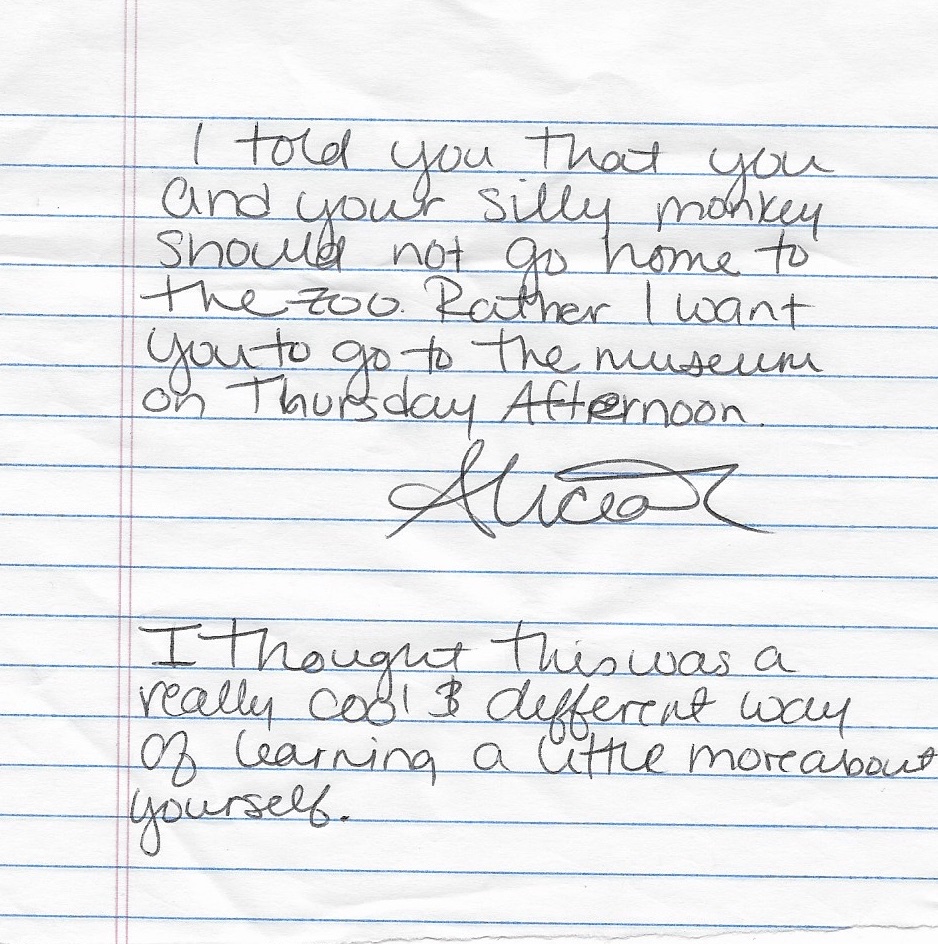 I told you that you
and your silly monkey
should not go home to
the zoo. Rather I want
you to go to the museum
on Thursday Afternoon.
Alicia
I thought this was a
really cool & different way
of learning a little more about
yourself.